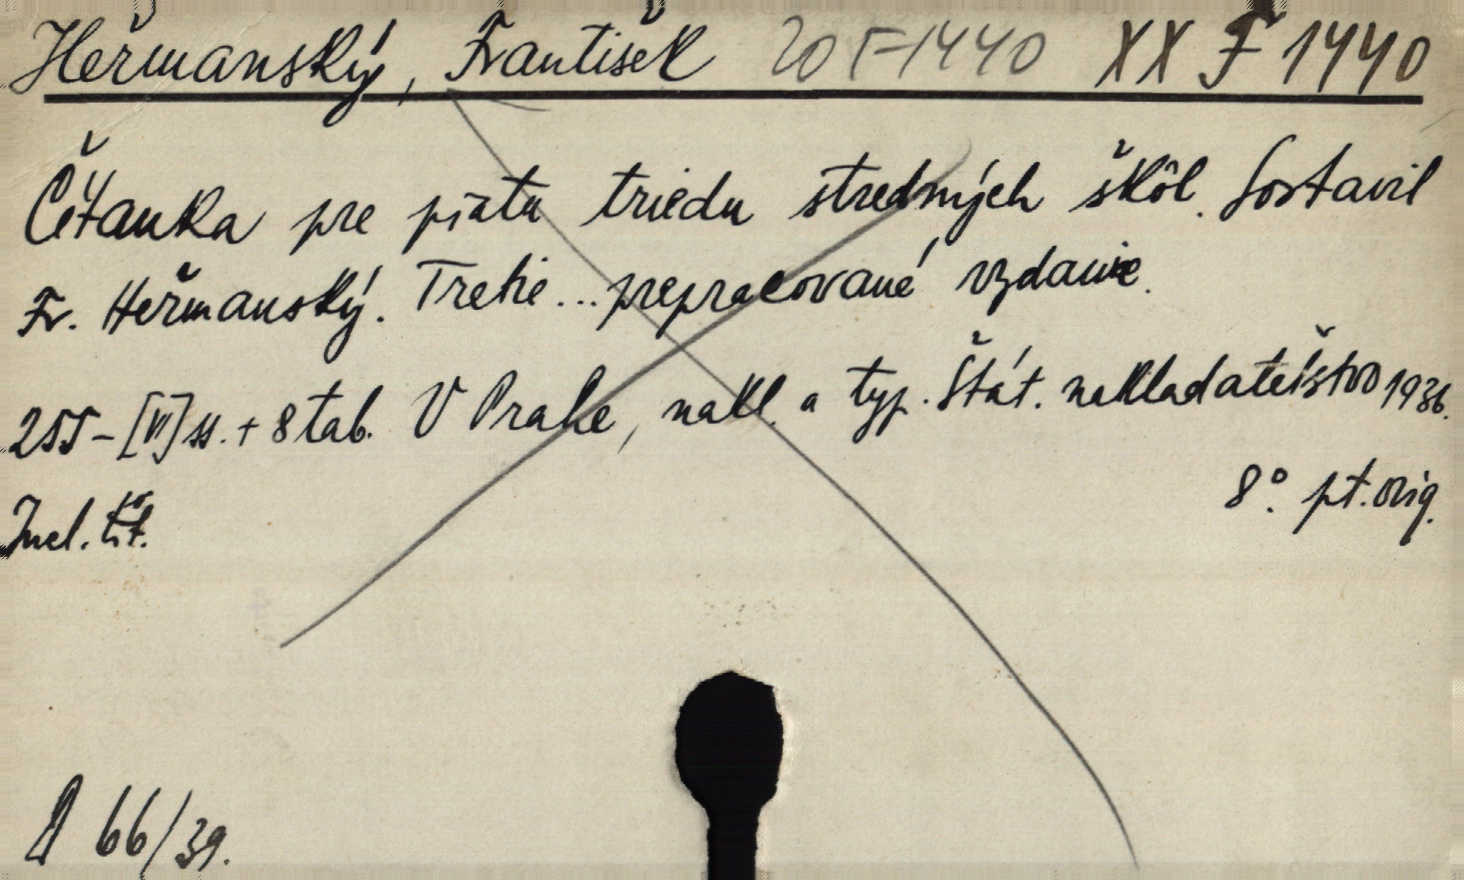 Heřmanský, František 20 F 1440 XX F 1440
Čítanka pre piatu triedu stredných škôl. Sostavil
Fr. Heřmanský. Tretie ... prepracované vydanie.
255-[VI] ss. + 8 tab. V Prahe, nakl. a typ. Štát. nakladateľstvo 1936.
8°. pt. orig.
Incl. tit.
66/39.